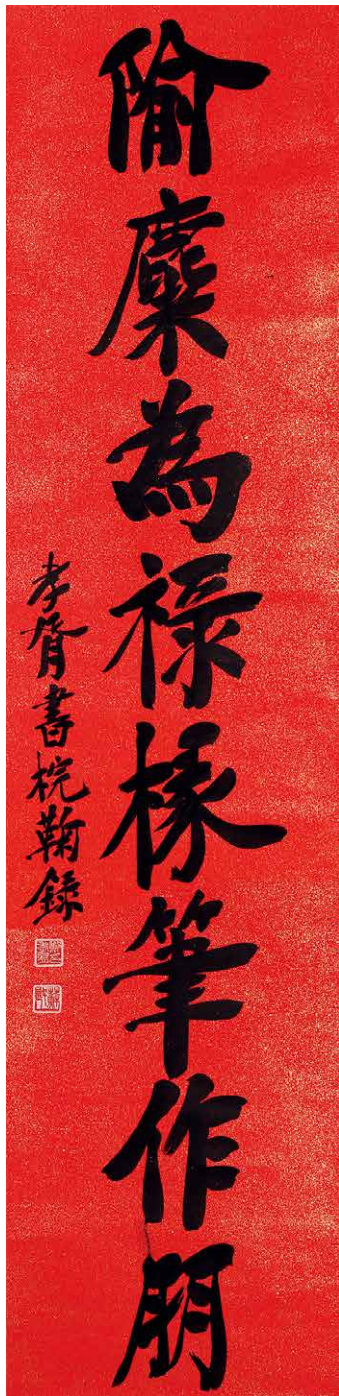 隃麋為祿椽筆作朋
孝胥書梡鞠錄